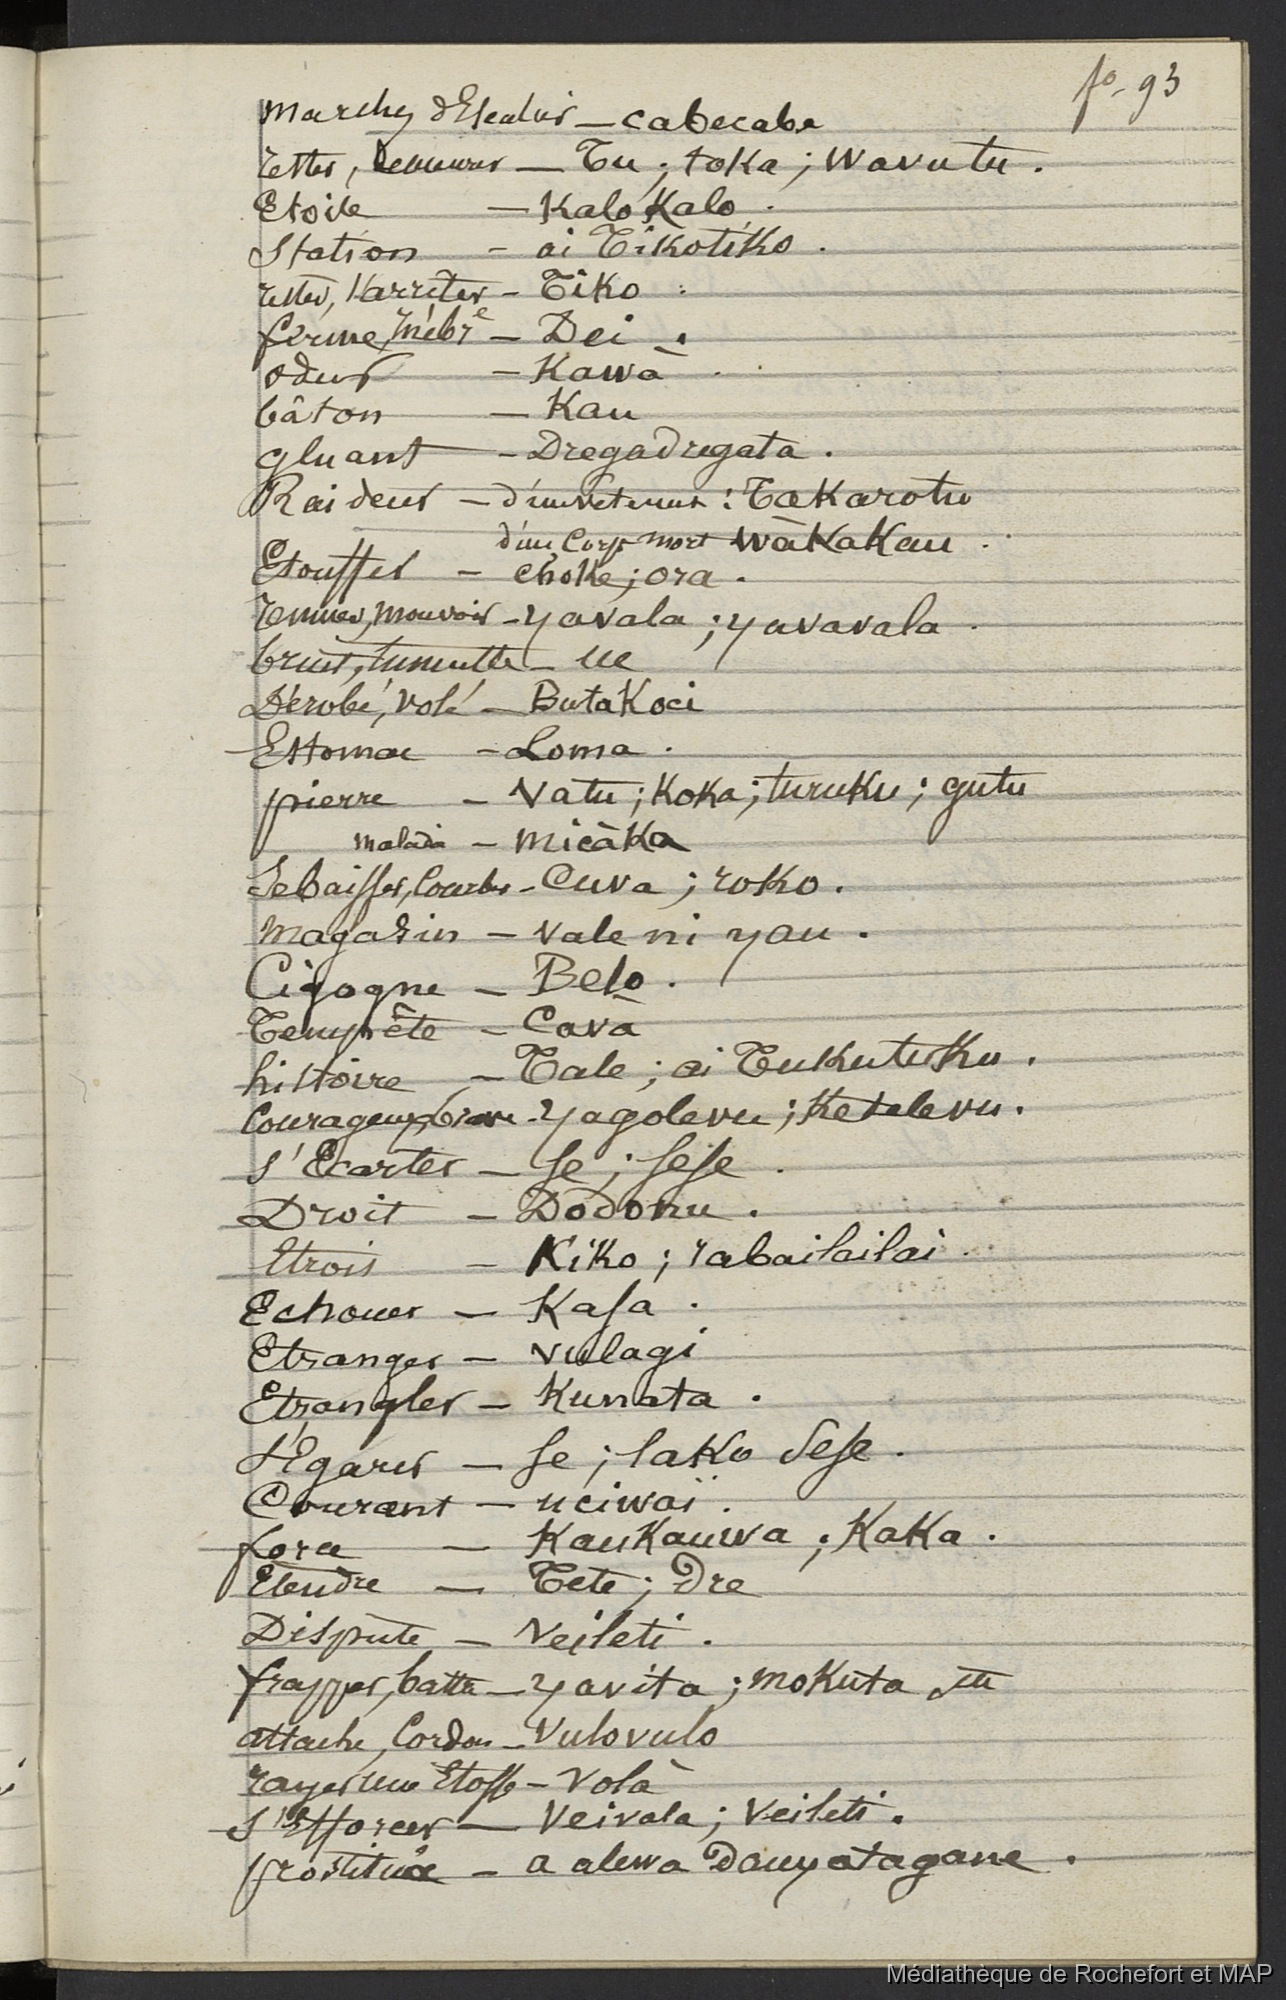 fo. 93
Marches d'Escalier — Cabecabe
rester, Demeurer — Tu ; toka ; wavutu .
Etoile — Kalo Kalo .
Station — ai Tikotiko .
rester, s'arrêter — Tiko .
ferme, — Dei .
odeur — Kawà .
bâton — Kau
gluant — Dregadregata .
Raideur — d'un vêtement : Takarotu
d'un Corps mort Wàkakau .
Etouffer — choke ; ora .
remuer, mouvoir — yavala ; yavavala .
bruit, tumulte — ue
Dérobé, volé — Butakoci
Estomac — Loma .
pierre — Vatu ; Koka ; turuku ; gutu
maladie — micàka
Se baisser, Courber — Cuva ; roko .
Magasin — vale ni yau .
Cigogne — Belo .
Tempête — Cavà
histoire — Tale ; ai Tukutuku .
Courageux, brave — yagolevu ; Ketelevu .
S'Ecarter — Se ; Sese .
Droit — Dodonu .
Etroit — Kiko ; rabailailai .
Echouer — Kasa .
Etranger — Vulagi
Etrangler — Kunata .
S'Egarer — Se ; lako Sese .
Courant — uciwai .
force — Kaukauwa ; Kaka .
Etendre — Tete ; Dre
Dispute — Veileti .
frapper, battre — yavita ; mokuta
attache, Cordon — Vulovulo
rayer une Etoffe — Volà
S'Efforcer — Veivala ; Veileti .
prostituée — a alewa Dauyatagane .
Médiathèque de Rochefort et MAP